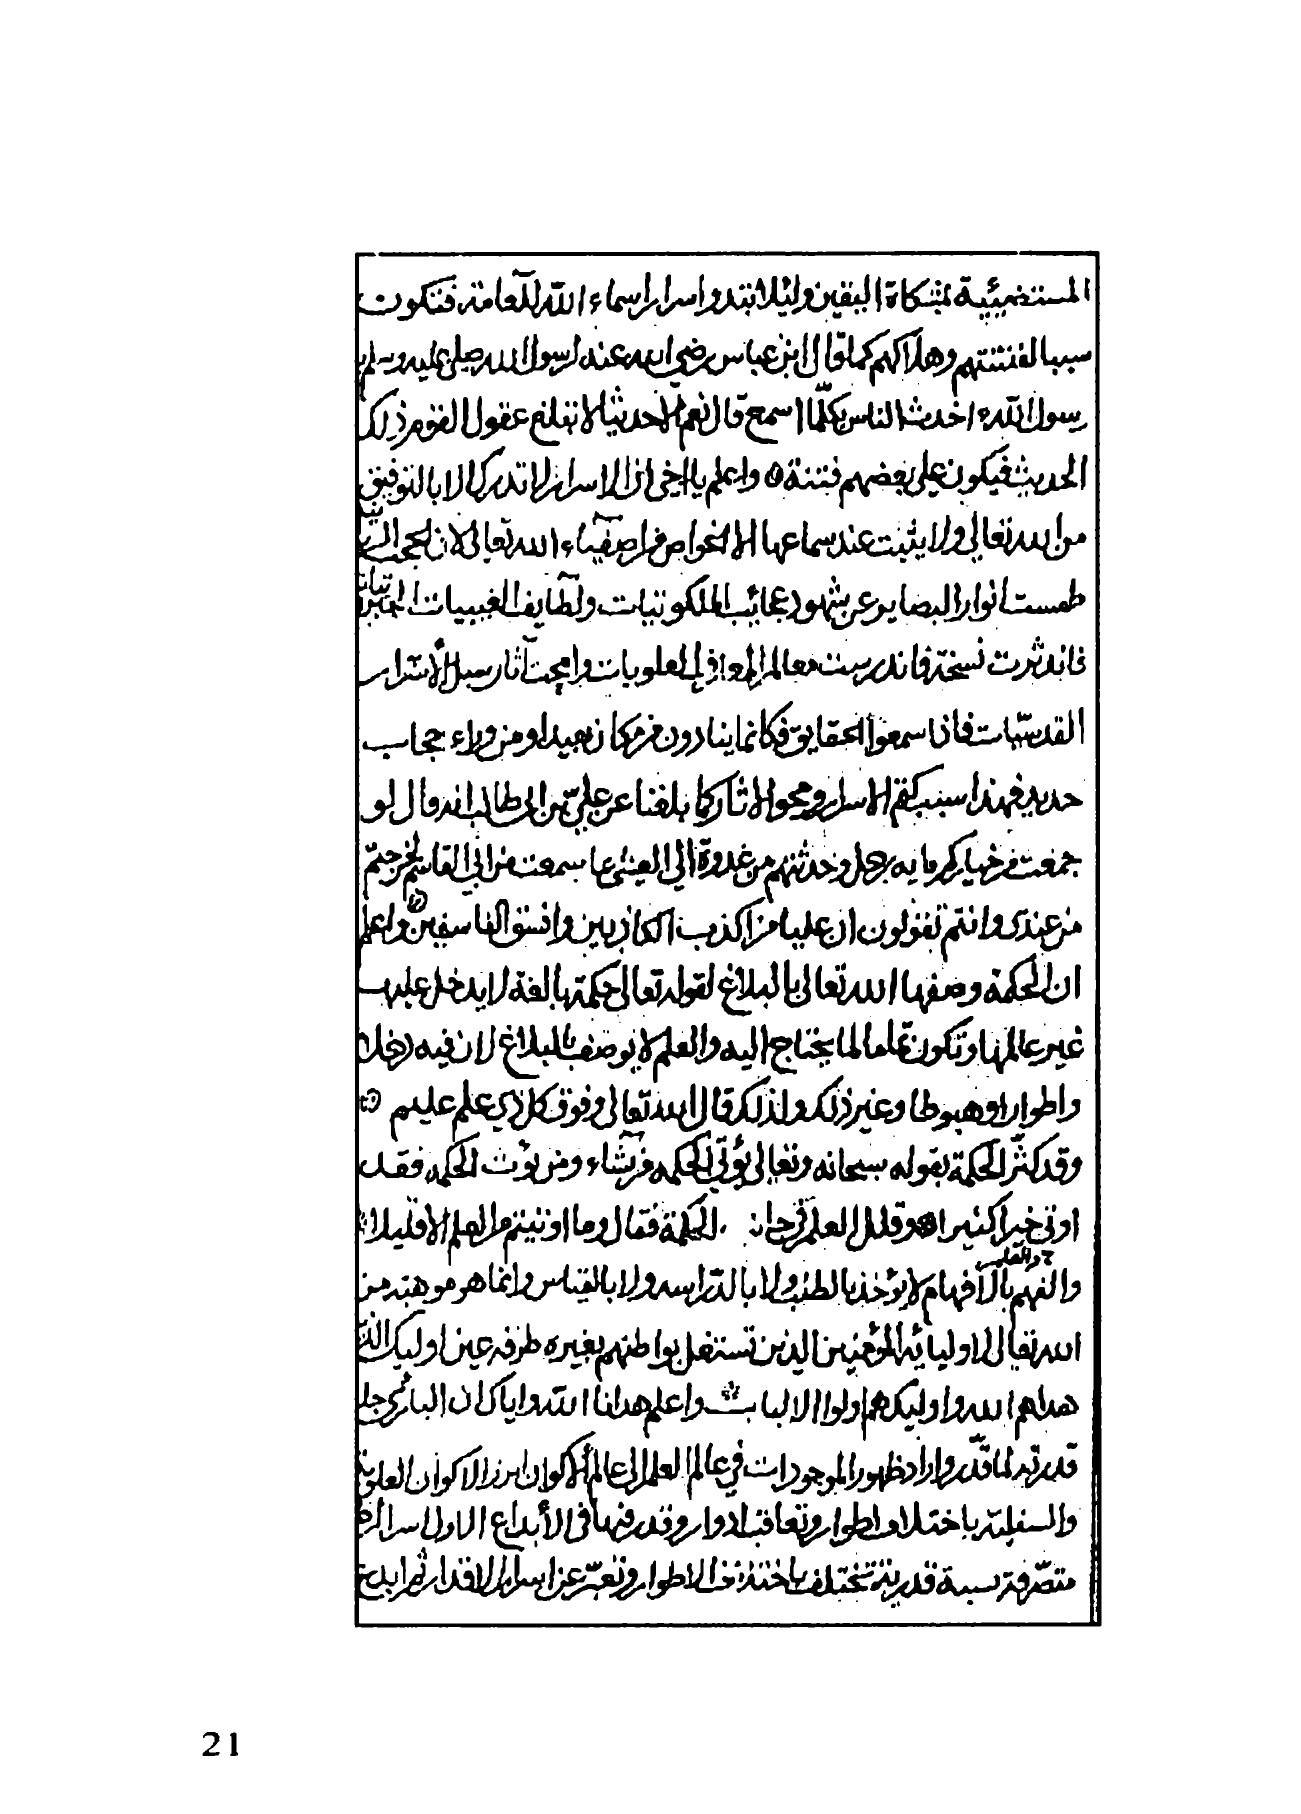 المستضيئية بمشكاة اليقين وليلا تبدوا اسرار اسماء الله للعامة فتكون
سببا لفتنتهم وهلاكهم كما قال ابن عباس رضي الله عنه لرسول الله صلى عليه وسلم
رسول الله اخدث الناس بكلما اسمع قال نعم الا حديثا لا تبلغ عقول القوم ذلك
الحديث فيكون على بعضهم فتنة واعلم يا اخي ان الاسرار لا تدرك الا بالتوفيق
من الله تعالى ولا يثبت عند سماعها الا الخواص من اصفياء الله تعالى لان الحجب
طمست انوار البصاير عن شهود عجائب الملكوتيات ولطايف الغيبيات
فاندثرت نسخة فاندرست معالم المعارف العلويات وامحت اثار سبل الاسرار
القدسيات فاذا سمعوا الحقايق فكانما ينادون من مكان بعيد او من وراء حجاب
حديد فهذا سبب كتم الاسرار ومحو الاثار كما بلغنا عن علي بن ابي طالب انه قال لو
جمعت من خياركم مايه رجل وحدثتهم من غدوة الي العشي عا سمعت من ابي القاسم لخرجتم
من عندي وانتم تقولون ان عليا من اكذب الكاذبين وافسق الفاسقين واعلم
ان الحكمة وصفها الله تعالى بالبلاغ لقوله تعالى حكمة بالغة لا يدخل عليها
غير عالمها وتكون تماما لما يحتاج اليه والعلم لا يوصف بالبلاغ لان فيه دخلا
واطوارا وهبوطا وغير ذلك ولذلك قال الله تعالى وفوق كل ذي علم عليم
وقد كثر الحكمة بقوله سبحانه وتعالى يؤتي الحكمه من يشاء ومن يؤت الحكمه فقد
اوتي خيرا كثيرا وقلل العلم الحكمة فقال وما اوتيتم من العلم الا قليلا
والفهم بالافهام لا يؤخذ بالطلب ولا بالدراسه ولا بالقياس وانما هو موهبة من
الله تعالى لاوليائه المؤمنين الذين تستغل بواطنهم بغيره طرفه عين اوليك الذين
هداهم الله واوليك هم اولوا الالباب واعلم هدانا الله واياك ان الباري جل
قدرته لما قدر واراد ظهور الموجودات في عالم العلم الى عالم الاكوان ابرز الاكوان العلوية
والسفلية باختلاف اطوار وتعاقب ادوار وقدر فيها في الابداع الاول اسرار
متصرفة بنسبة قدرية تختلف باختلاف الاطوار وتعبر عن اسرار الاقدار ثم ابدع
21